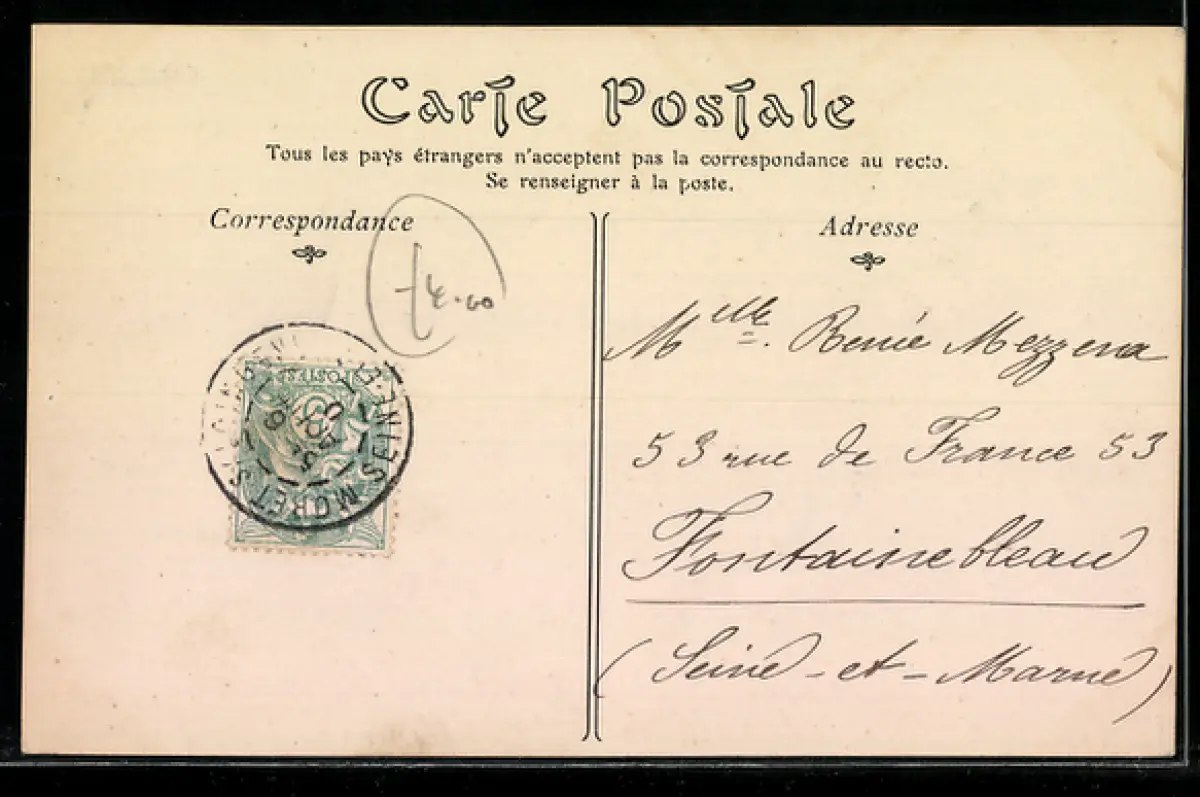 Carte Postale
Tous les pays étrangers n'acceptent pas la correspondance au recto.
Se renseigner à la poste.
Correspondance
Adresse
POSTES
MORET S
SEINE
Mlle. Renée Mezzena
53 rue de France 53
Fontainebleau
(Seine-et-Marne)